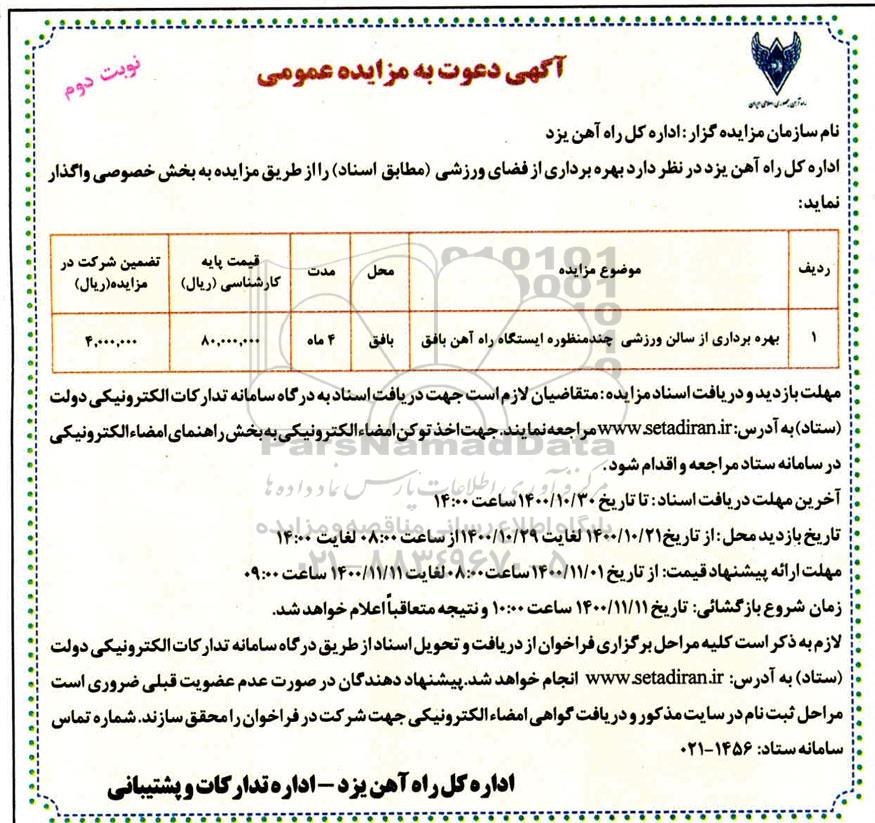 راه آهن جمهوری اسلامی ایران
آگهی دعوت به مزایده عمومی
نوبت دوم
نام سازمان مزایده گزار: اداره کل راه آهن یزد
اداره کل راه آهن یزد در نظر دارد بهره برداری از فضای ورزشی (مطابق اسناد) را از طریق مزایده به بخش خصوصی واگذار
نماید:
ردیف موضوع مزایده محل مدت قیمت پایه کارشناسی (ریال) تضمین شرکت در مزایده(ریال)
۱ بهره برداری از سالن ورزشی چندمنظوره ایستگاه راه آهن بافق بافق ۴ ماه ۸۰,۰۰۰,۰۰۰ ۴,۰۰۰,۰۰۰
مهلت بازدید و دریافت اسناد مزایده: متقاضیان لازم است جهت دریافت اسناد به درگاه سامانه تدارکات الکترونیکی دولت
(ستاد) به آدرس: www.setadiran.ir مراجعه نمایند. جهت اخذ توکن امضاء الکترونیکی به بخش راهنمای امضاء الکترونیکی
در سامانه ستاد مراجعه و اقدام شود.
آخرین مهلت دریافت اسناد: تا تاریخ ۱۴۰۰/۱۰/۳۰ ساعت ۱۴:۰۰
تاریخ بازدید محل: از تاریخ ۱۴۰۰/۱۰/۲۱ لغایت ۱۴۰۰/۱۰/۲۹ از ساعت ۰۸:۰۰ لغایت ۱۴:۰۰
مهلت ارائه پیشنهاد قیمت: از تاریخ ۱۴۰۰/۱۱/۰۱ ساعت ۰۸:۰۰ لغایت ۱۴۰۰/۱۱/۱۱ ساعت ۰۹:۰۰
زمان شروع بازگشائی: تاریخ ۱۴۰۰/۱۱/۱۱ ساعت ۱۰:۰۰ و نتیجه متعاقباً اعلام خواهد شد.
لازم به ذکر است کلیه مراحل برگزاری فراخوان از دریافت و تحویل اسناد از طریق درگاه سامانه تدارکات الکترونیکی دولت
(ستاد) به آدرس: www.setadiran.ir انجام خواهد شد. پیشنهاد دهندگان در صورت عدم عضویت قبلی ضروری است
مراحل ثبت نام در سایت مذکور و دریافت گواهی امضاء الکترونیکی جهت شرکت در فراخوان را محقق سازند. شماره تماس
سامانه ستاد: ۱۴۵۶-۰۲۱
اداره کل راه آهن یزد - اداره تدارکات و پشتیبانی
ParsNamadData
مرکز فرآوری اطلاعات پارس نماد داده ها
پایگاه اطلاع رسانی مناقصه و مزایده
۰۲۱-۸۸۳۴۹۶۷۰-۵